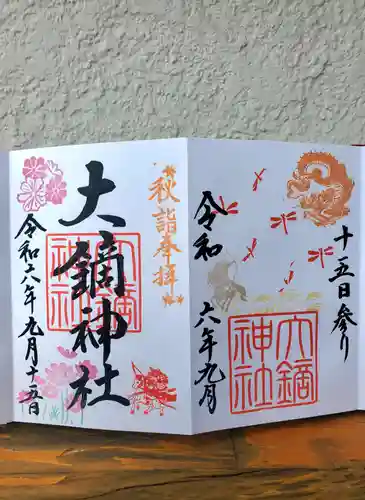 十五日参り
令和六年九月
大鏑神社
秋詣奉拝
大鏑神社
令和六年九月十五日
大鏑神社